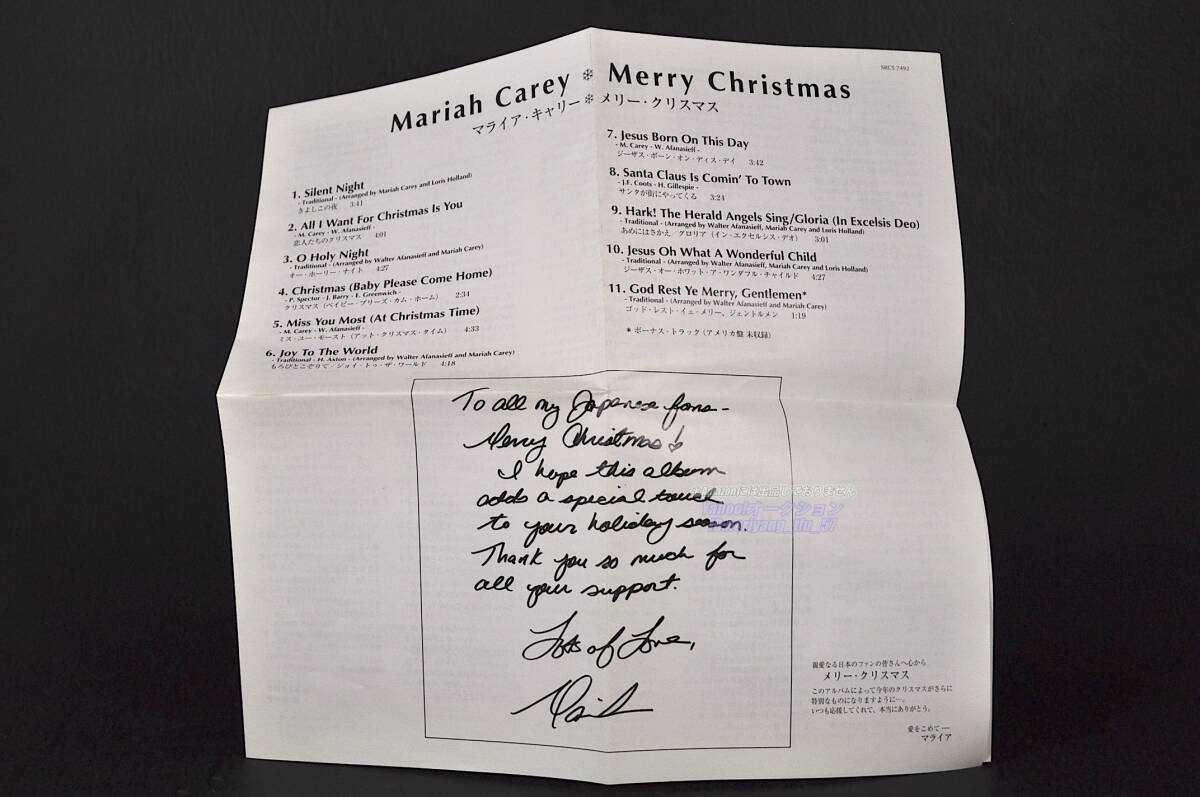 SRCS 7492
Mariah Carey ❄ Merry Christmas
マライア・キャリー ❄ メリー・クリスマス
1. Silent Night
- Traditional - (Arranged by Mariah Carey and Loris Holland)
きよしこの夜 3:41
2. All I Want For Christmas Is You
- M. Carey - W. Afanasieff -
恋人たちのクリスマス 4:01
3. O Holy Night
- Traditional - (Arranged by Walter Afanasieff and Mariah Carey)
オー・ホーリー・ナイト 4:27
4. Christmas (Baby Please Come Home)
- P. Spector - J. Barry - E. Greenwich -
クリスマス (ベイビー・プリーズ・カム・ホーム) 2:34
5. Miss You Most (At Christmas Time)
- M. Carey - W. Afanasieff -
ミス・ユー・モースト (アット・クリスマス・タイム) 4:33
6. Joy To The World
- Traditional - H. Axton - (Arranged by Walter Afanasieff and Mariah Carey)
もろびとこぞりて/ジョイ・トゥ・ザ・ワールド 4:18
7. Jesus Born On This Day
- M. Carey - W. Afanasieff -
ジーザス・ボーン・オン・ディス・デイ 3:42
8. Santa Claus Is Comin' To Town
- J.F. Coots - H. Gillespie -
サンタが街にやってくる 3:24
9. Hark! The Herald Angels Sing/Gloria (In Excelsis Deo)
- Traditional - (Arranged by Walter Afanasieff, Mariah Carey and Loris Holland)
あめにはさかえ/グロリア (イン・エクセルシス・デオ) 3:01
10. Jesus Oh What A Wonderful Child
- Traditional - (Arranged by Walter Afanasieff, Mariah Carey and Loris Holland)
ジーザス・オー・ホワット・ア・ワンダフル・チャイルド 4:27
11. God Rest Ye Merry, Gentlemen*
- Traditional - (Arranged by Walter Afanasieff and Mariah Carey)
ゴッド・レスト・イェ・メリー、ジェントルメン 1:19
* ボーナス・トラック (アメリカ盤 未収録)
To all my Japanese fans -
Merry Christmas!
I hope this album
adds a special touch
to your holiday season.
Thank you so much for
all your support.
Lots of Love,
Mariah
Amazonには出品しておりません
Yahoo!オークション
親愛なる日本のファンの皆さんへ心から
メリー・クリスマス
このアルバムによって今年のクリスマスがさらに
特別なものになりますように…。
いつも応援してくれて、本当にありがとう。
愛をこめて ―
マライア